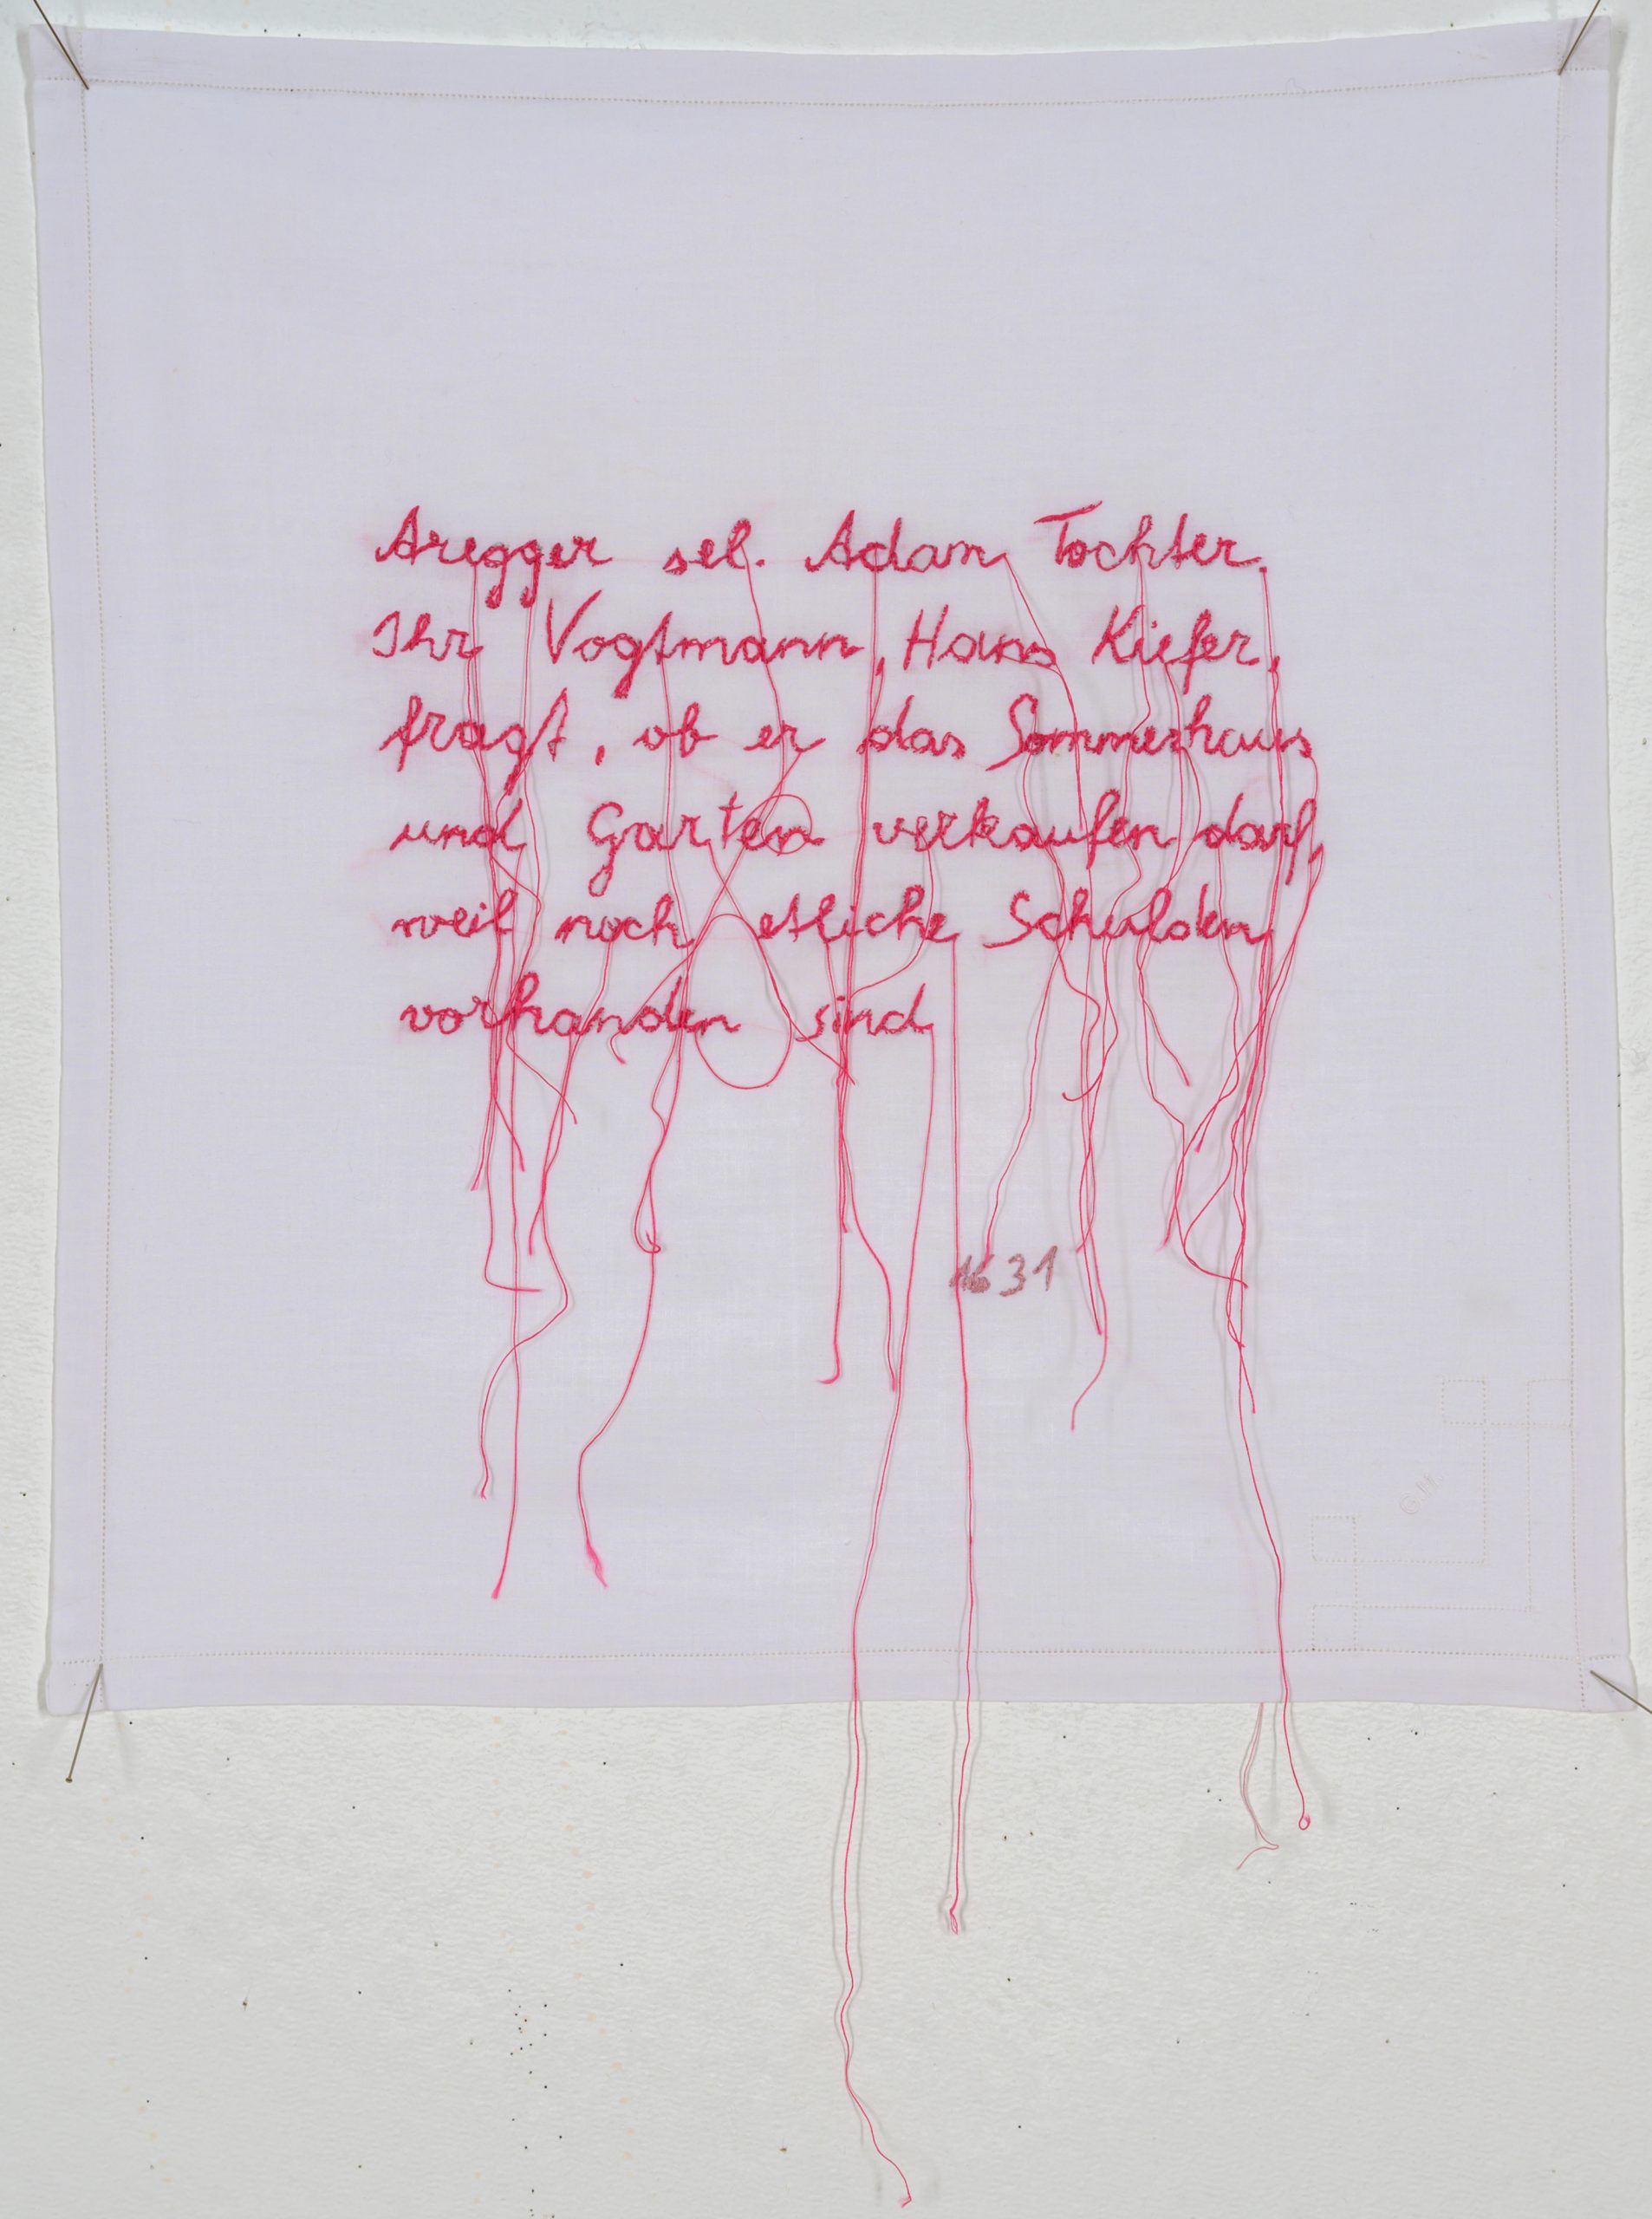 Aregger sel. Adam Tochter.
Ihr Vogtmann, Hans Kiefer,
fragt, ob er das Sommerhaus
und Garten verkaufen darf,
weil noch etliche Schulden
vorhanden sind
1631